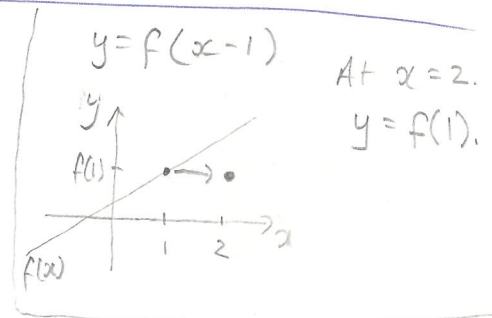 y = f(x-1)
At x = 2.
y = f(1).
y
f(1)
1
2
x
f(x)